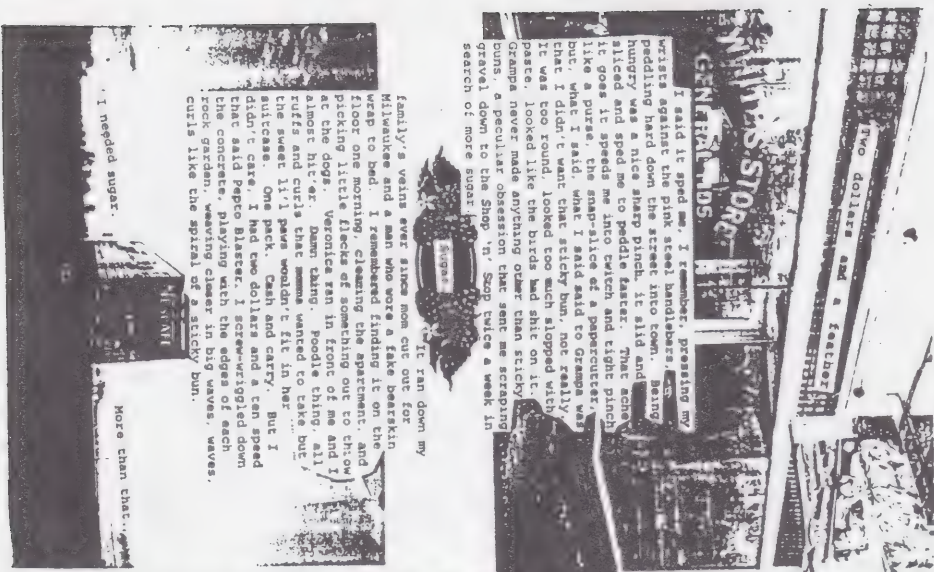 Two dollars and a feather
STORE
I said it sped me, I remember, pressing my
wrists against the pink steel handlebars,
peddling hard down the street into town. Being
hungry was a nice sharp pinch, it slid and
sliced and sped me to peddle faster. That ache
it goes it speeds me into twitch and tight pinch
like a purse, the snap-slice of a papercutter,
but, what I said, what I said said to Grampa was
that I didn't want that sticky bun, not really.
It was too round, looked too much slopped with
paste, looked like the birds had shit on it.
Grampa never made anything other than sticky
buns, a peculiar obsession that sent me scraping
gravel down to the Shop 'n' Stop twice a week in
search of more sugar
Sugar
It ran down my
family's veins ever since mom cut out for
Milwaukee and a man who wore a fake bearskin
wrap to bed. I remembered finding it on the
floor one morning, cleaning the apartment, and
picking little flecks of something out to throw
at the dogs. Veronica ran in front of me and I
almost hit'er. Damn thing. Poodle thing, all
ruffs and curls that momma wanted to take but
the sweet li'l paws wouldn't fit in her
suitcase. One pack. Cash and carry. But I
didn't care, I had two dollars and a ten speed
that said Pepto Blaster. I screw-wriggled down
the concrete, playing with the edges of each
rock garden, weaving closer in big waves, waves,
curls like the spiral of a sticky bun.
More than that...
I needed sugar.